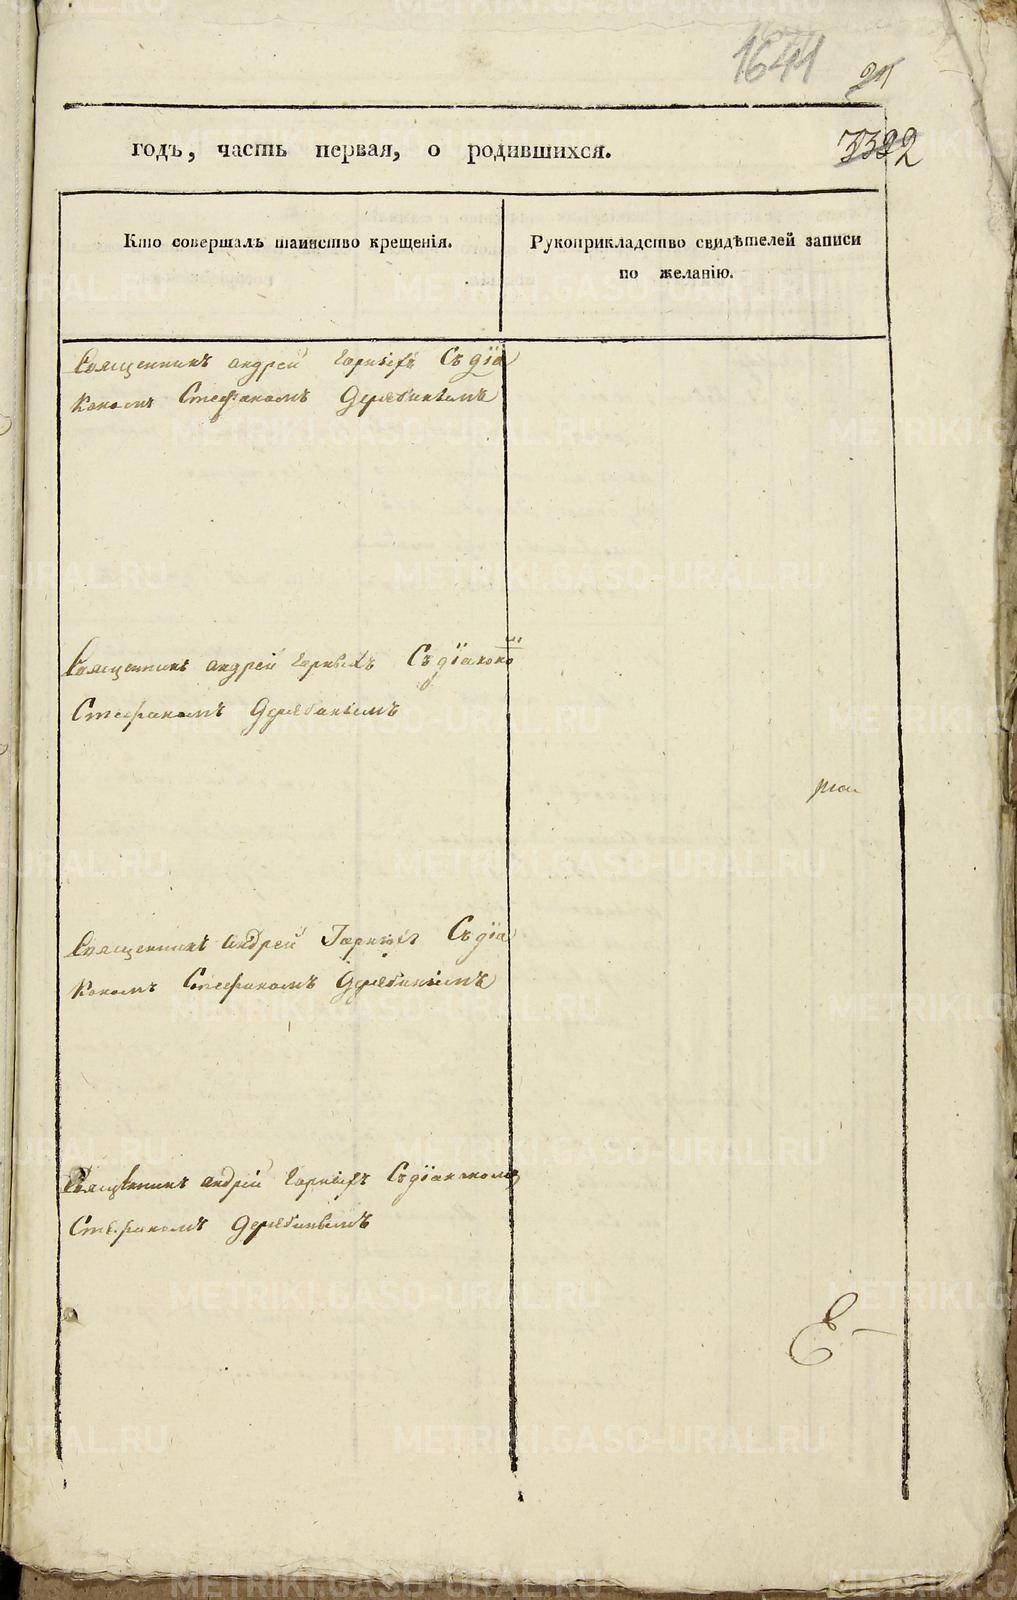 1641
24
годъ, часть первая, о родившихся.
Кто совершалъ таинство крещенія.
Рукоприкладство свидѣтелей записи
по желанію.
Священникъ андрей Горныхъ Съ діа
кономъ Стефаномъ Дерябинымъ
Священникъ андрей Горныхъ Съ діаконо
Стефаномъ Дерябинымъ
Священникъ андрей Горныхъ Съ діа
кономъ Стефаномъ Дерябинымъ
Священникъ андрій Горныхъ Съ діакономъ
Стефаномъ Дерябинымъ
METRIKI.GASO-URAL.RU